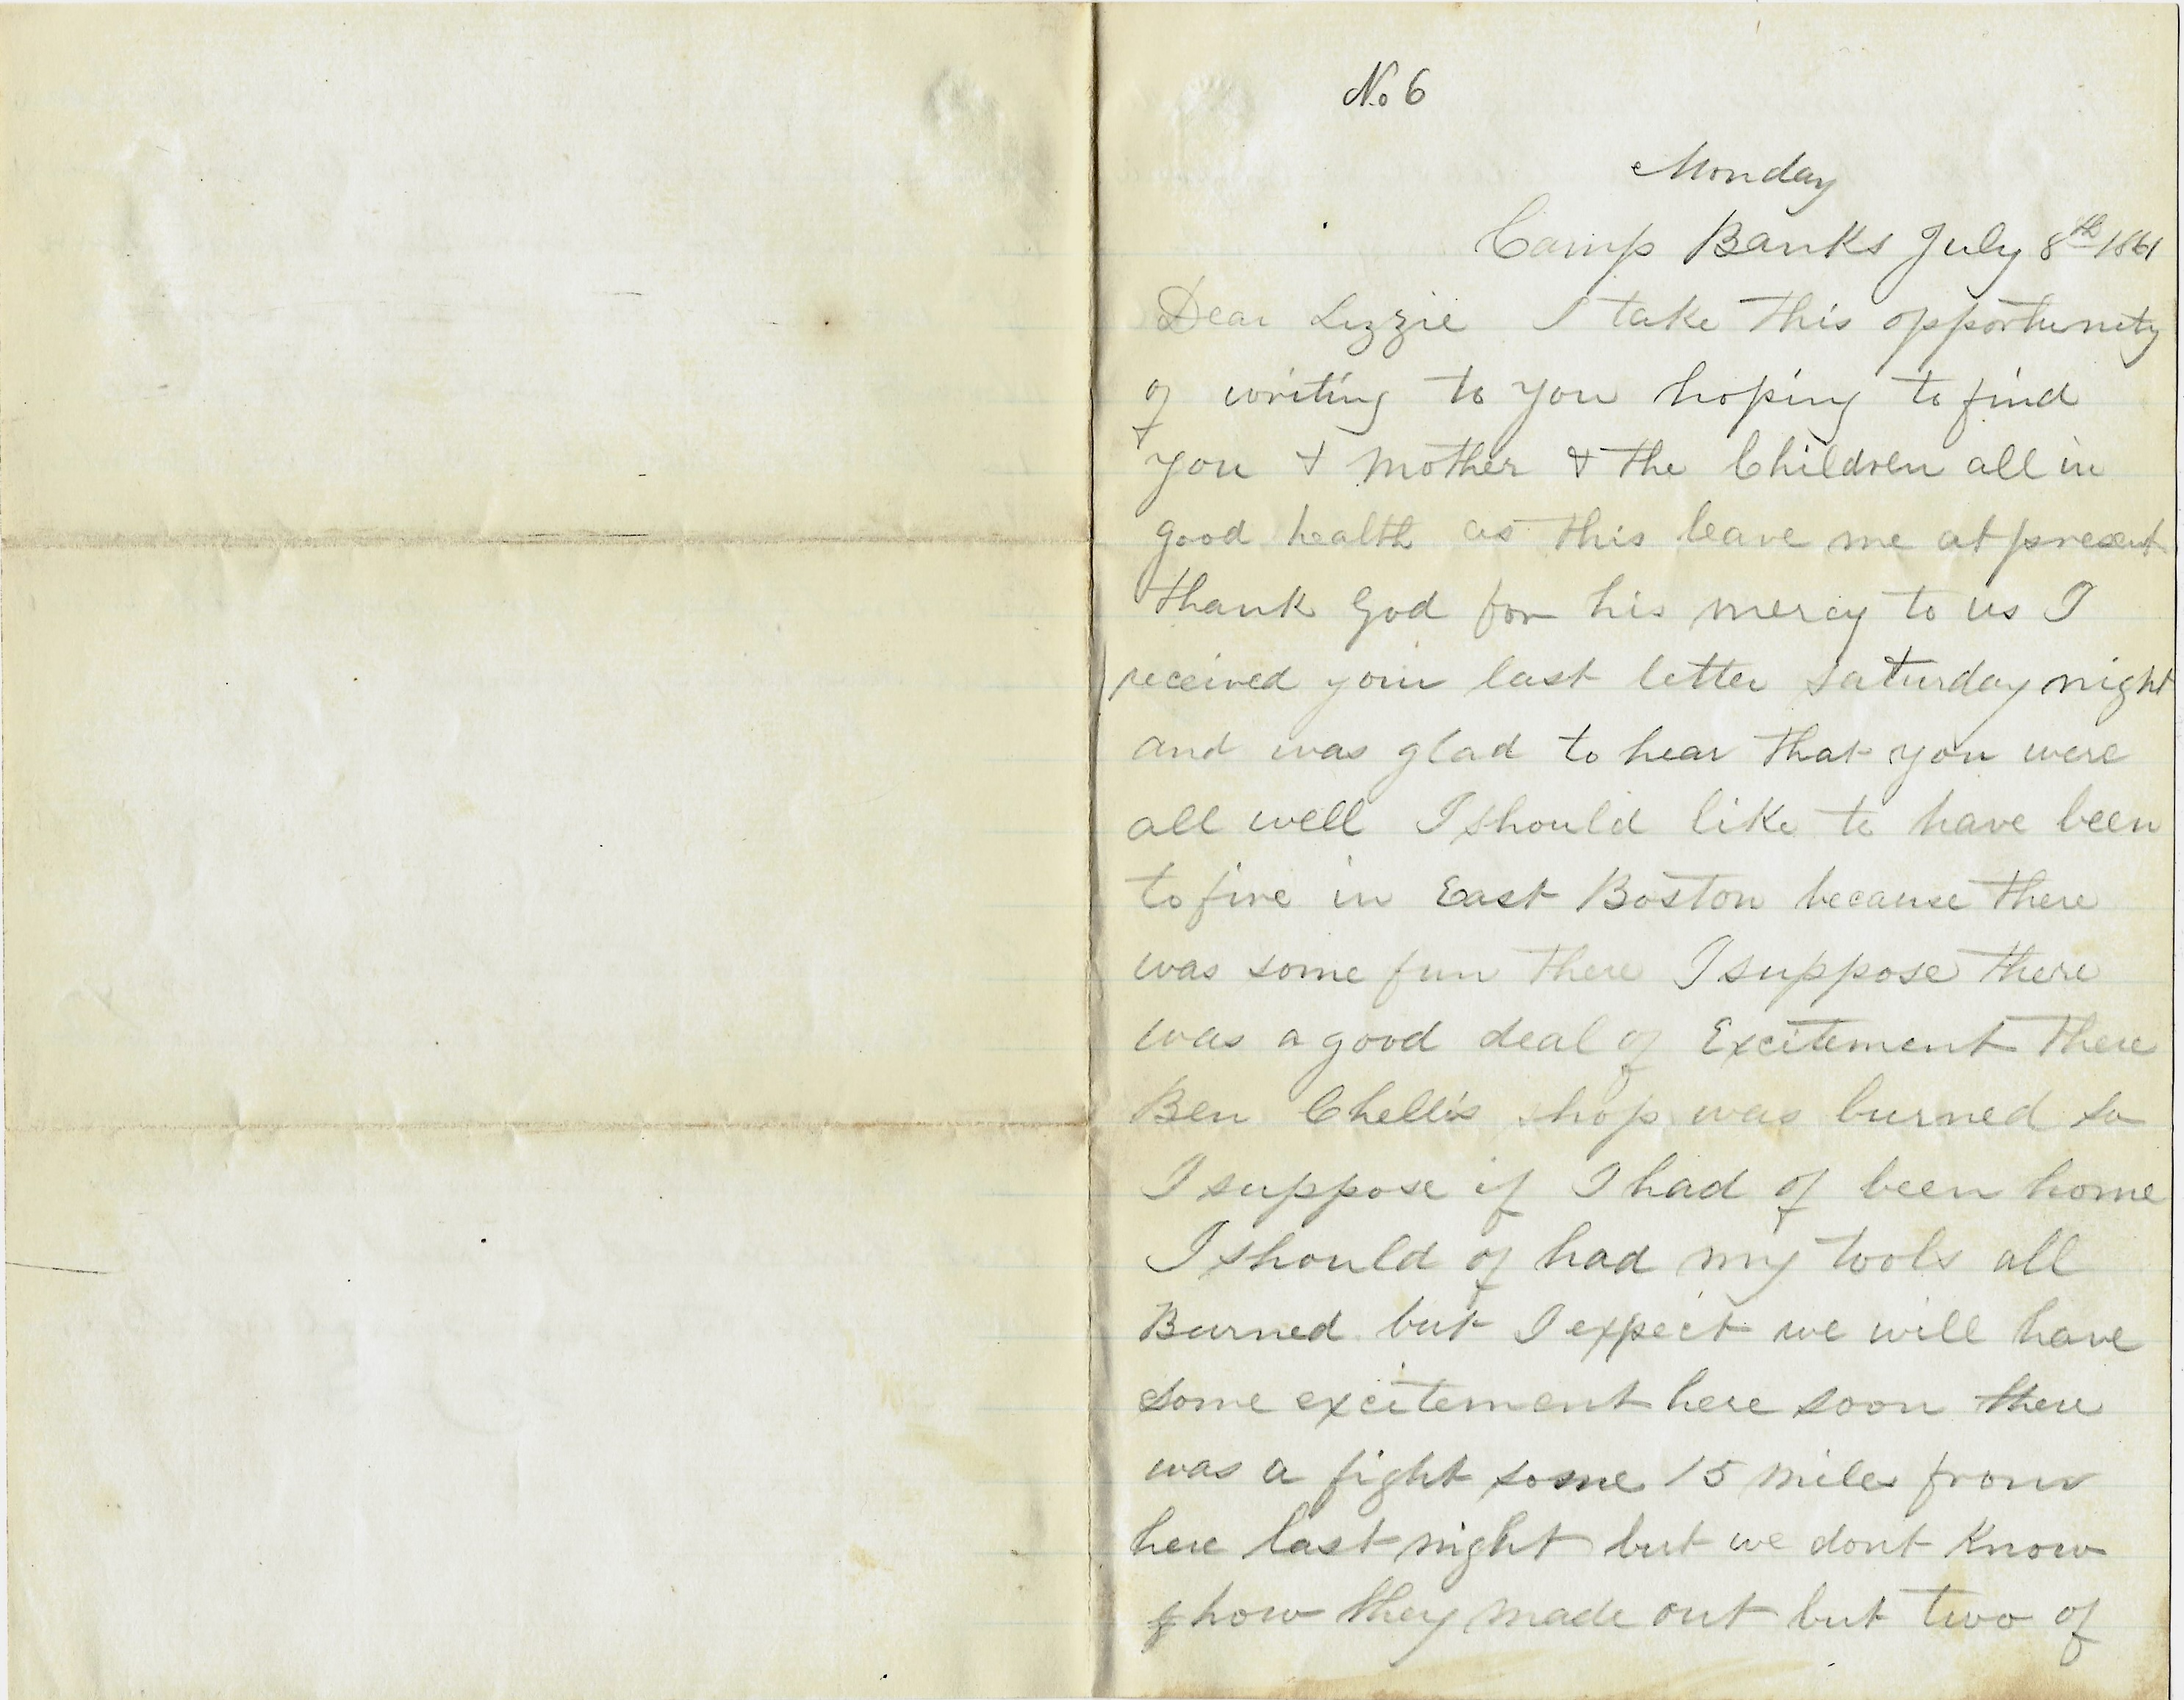 No 6
Monday
Camp Banks July 8th 1861
Dear Lizzie I take this opportunity
of writing to you hoping to find
you & mother & the Children all in
good health as this leave me at present
thank God for his mercy to us I
received your last letter saturday night
and was glad to hear that you were
all well I should like to have been
to fire in East Boston because there
was some fun there I suppose there
was a good deal of Excitement there
Ben Chellis shop was burned so
I suppose if I had of been home
I should of had my tools all
Burned but I expect we will have
some excitement here soon there
was a fight some 15 miles from
here last night but we dont Know
how they made out but two of